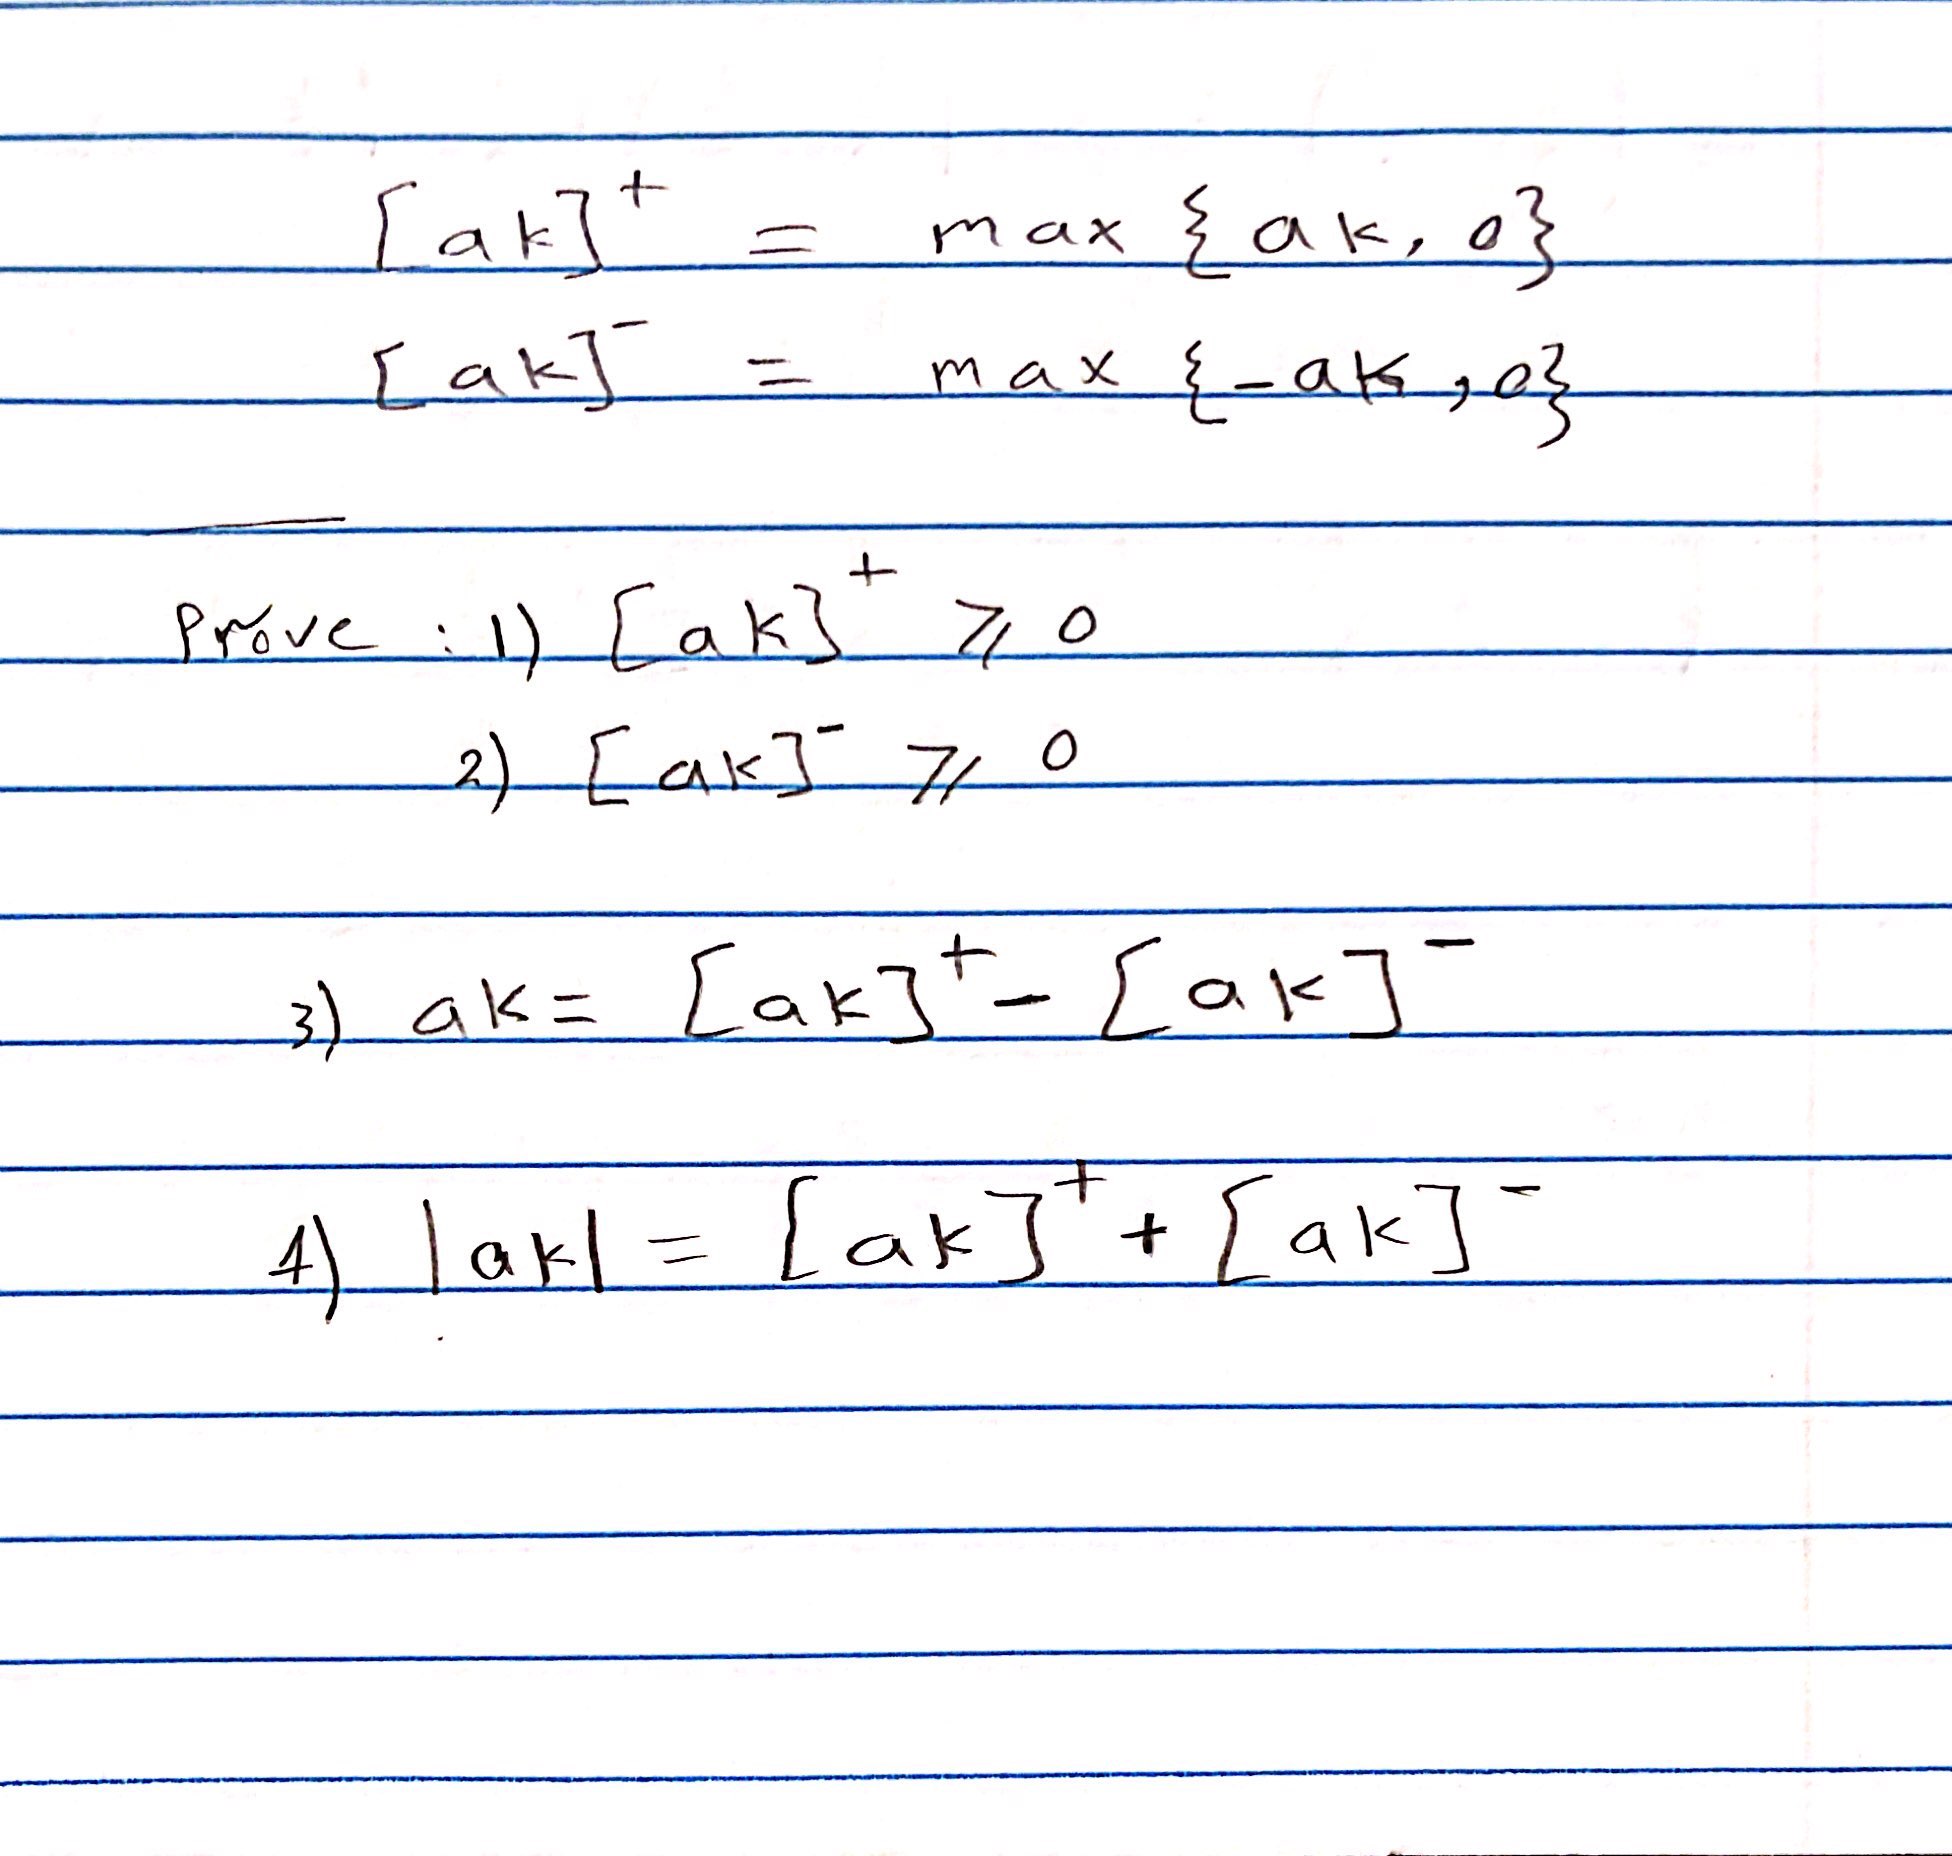 [ak]⁺ = max {ak, 0}
[ak]⁻ = max {-ak, 0}
Prove : 1) [ak]⁺ ⩾ 0
2) [ak]⁻ ⩾ 0
3) ak = [ak]⁺ - [ak]⁻
4) |ak| = [ak]⁺ + [ak]⁻